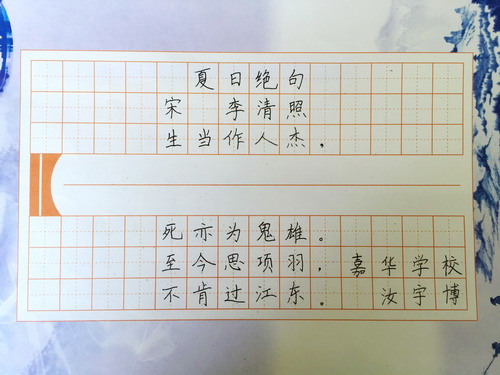 夏日绝句
宋 李清照
生当作人杰，
死亦为鬼雄。
至今思项羽，嘉华学校
不肯过江东。汝宇博